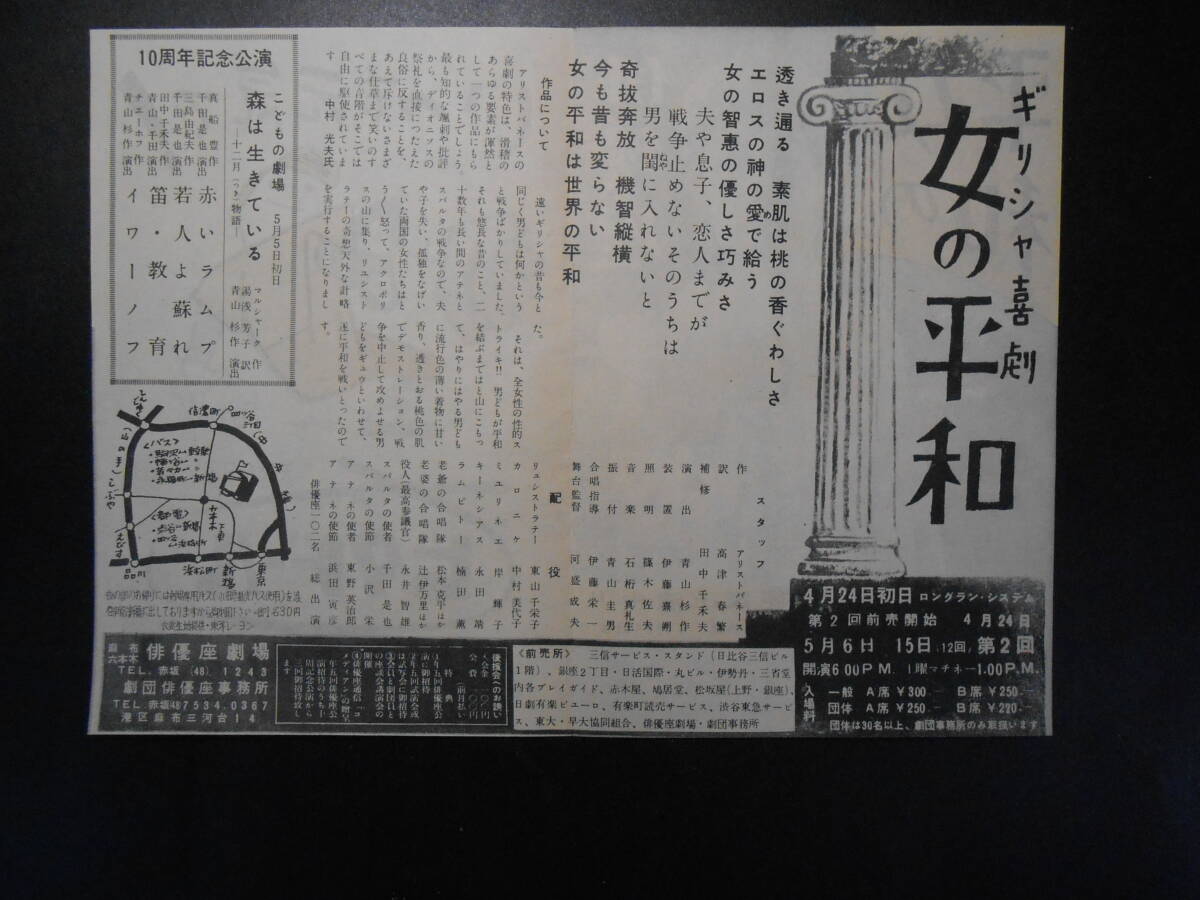 ギリシャ喜劇
女の平和
透き通る 素肌は桃の香ぐわしさ
エロスの神の愛で給う
め
女の智恵の優しさ巧みさ
夫や息子、恋人までが
戦争止めないそのうちは
男を閨に入れないと
ねや
奇抜奔放 機智縦横
今も昔も変らない
女の平和は世界の平和
作品について
アリストパネースの
喜劇の特色は、滑稽の
あらゆる要素が渾然と
して一つの作品にもら
れていることでしょう。
最も知的な諷刺や批評
から、ディオニッソスの
祭礼を直接につたえた
良俗に反することを、
あえて斥けないさまざ
まな仕草まで笑いのす
べての音階がそこでは
自由に駆使されていま
す
中村 光夫氏
遠いギリシャの昔も今と
同じく男どもは何かという
と戦争ばかりしていました、
それも悠長な昔のこと、二
十数年も長い間のアテネと
スパルタの戦争なので、夫
や子を失い、孤独をなげい
ていた両国の女性たちはと
う〳〵怒って、アクロポリ
スの山に集り、リュシスト
ラテーの奇想天外な計略
を実行することになりまし
た。
それは、全女性の性的ス
トライキ!! 男どもが平和
を結ぶまではと山にこもっ
て、はやりにはやる男ども
に流行色の薄い着物に甘い
香り、透きとおる桃色の肌
でデモストレーション、戦
争を中止して攻めよせる男
どもをギュウといわせて、
遂に平和を戦いとったので
す。
スタッフ
作 アリストパネース
訳 高津春繁
補修 田中千禾夫
演出 青山杉作
装置 伊藤嘉朔
照明 篠木佐夫
音楽 石桁真礼生
振付 青山圭男
合唱指導 伊藤栄一
舞台監督 河盛成夫
配役
リュシストラテー 東山千栄子
カロニケ 中村美代子
ミュリネエ 岸輝子
キーネシアス 永田靖
ラムピトー 楠田薫
老爺の合唱隊 松本克平ほか
老婆の合唱隊 辻伊万里ほか
役人(最高参議官) 永井智雄
スパルタの使者 千田是也
スパルタの使節 小沢栄
アテネの使者 東野英治郎
アテネの使節 浜田寅彦
俳優座一〇二名 総出演
10周年記念公演
こどもの劇場 5月5日初日
森は生きている
―十二月(つき)物語―
マルシャーク 作
湯浅芳子 訳
青山杉作 演出
真船豊作
千田是也演出
赤いランプ
三島由紀夫作
千田是也演出
若人よ蘇れ
田中千禾夫作
青山・千田演出
笛・教育
チェーホフ作
青山杉作演出
イワーノフ
信濃町
四ッ谷
三丁目
<バス>
<都電>
品川
浜松町
新橋
東京
4月24日初日 ロングラン・システム
第2回前売開始 4月24日
5月6日 15日(12回)第2回
開演6.00P.M. 日曜マチネー1.00P.M.
入場料
一般 A席¥300― B席¥250―
団体 A席¥250― B席¥220―
団体は30名以上、劇団事務所のみ取扱います
<前売所>
三信サービス・スタンド(日比谷三信ビル
1階)、銀座2丁目・日活国際・丸ビル・伊勢丹・三省堂
内各プレイガイド、赤木屋、鳩居堂、松坂屋(上野・銀座)、
日劇有楽ビューロ、有楽町読売サービス、渋谷東急サービ
ス、東大・早大協同組合、俳優座劇場・劇団事務所
後援会へのお誘い
特典
麻布
六本木
俳優座劇場
TEL. 赤坂(48) 1243
劇団俳優座事務所
TEL. 赤坂487534.0367
港区麻布三河台14